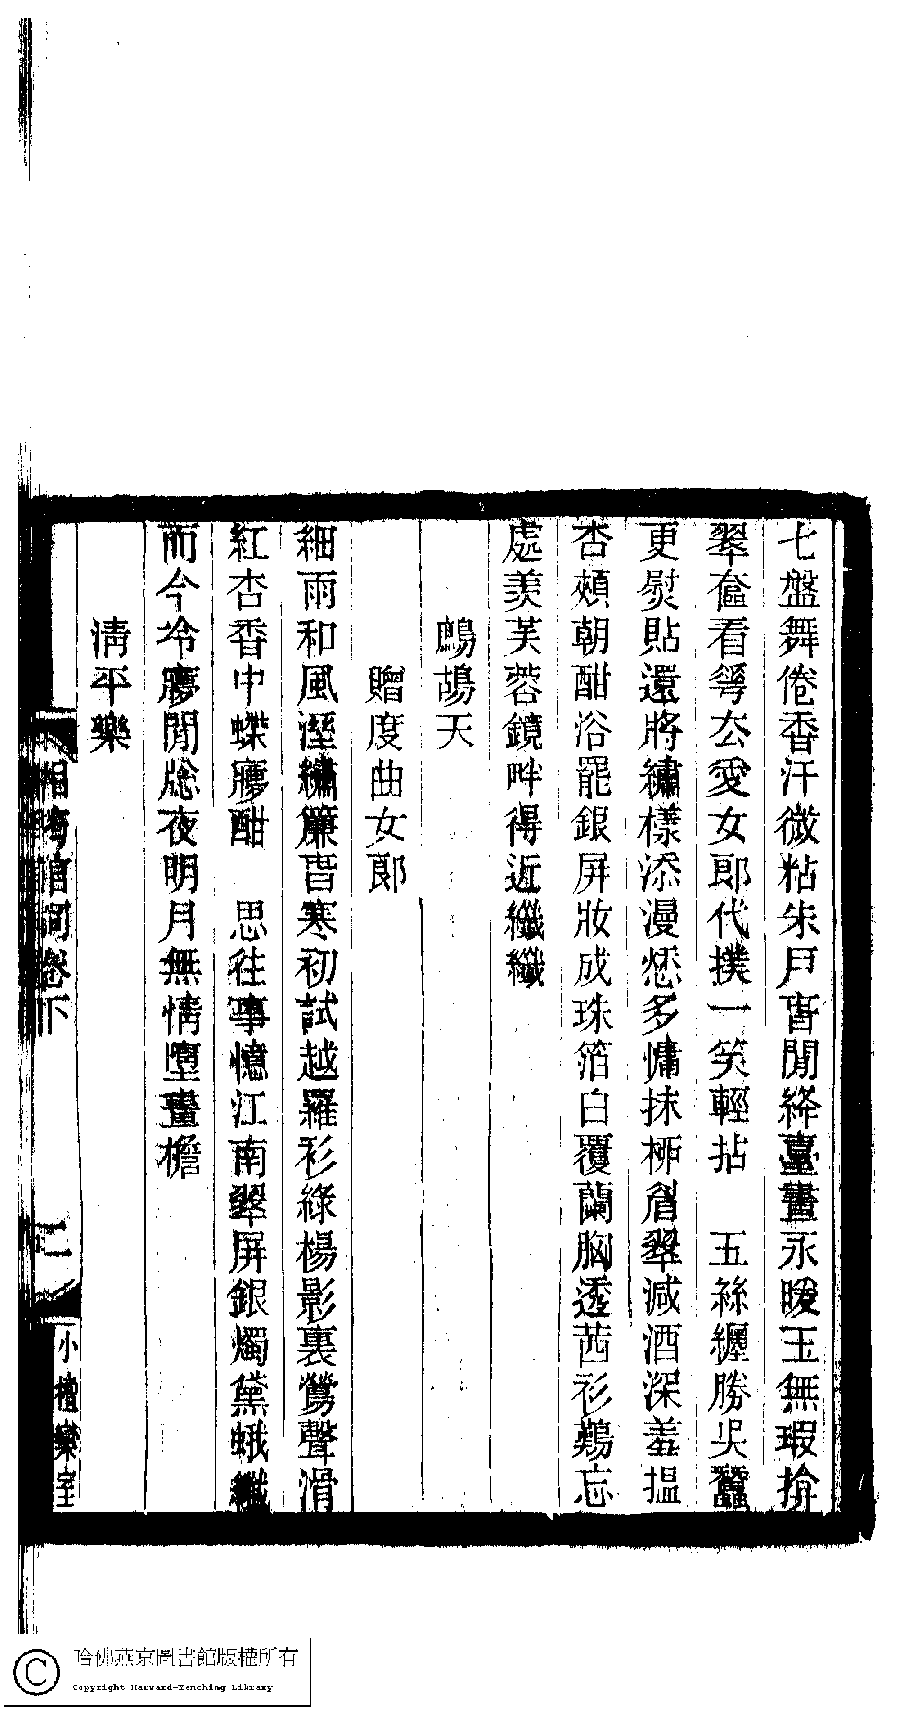 七盤舞倦香汗微粘朱戶晝閒絳臺晝永暖玉無瑕揜
翠奩看弩厷愛女郎代撲一笑輕拈　五絲纏勝吳蠶
更熨貼還將繡樣添漫惄多慵抹柳眉翠減酒深羞搵
杏頰朝酣浴罷銀屏妝成珠箔白覆蘭胸透茜衫鷄忘
處羨芙蓉鏡畔得近纖纖
鷓鴣天
贈度曲女郎
細雨和風溼繡簾昔寒初試越羅衫綠楊影裏鶯聲滑
紅杏香中蝶夢酣　思往事憶江南翠屏銀燭黛蛾纖
而今冷夢閒牕夜明月無情墮畫檐
淸平樂
館詞卷下
二
小檀欒室
哈佛燕京圖書館版權所有
Copyright Harvard-Yenching Library